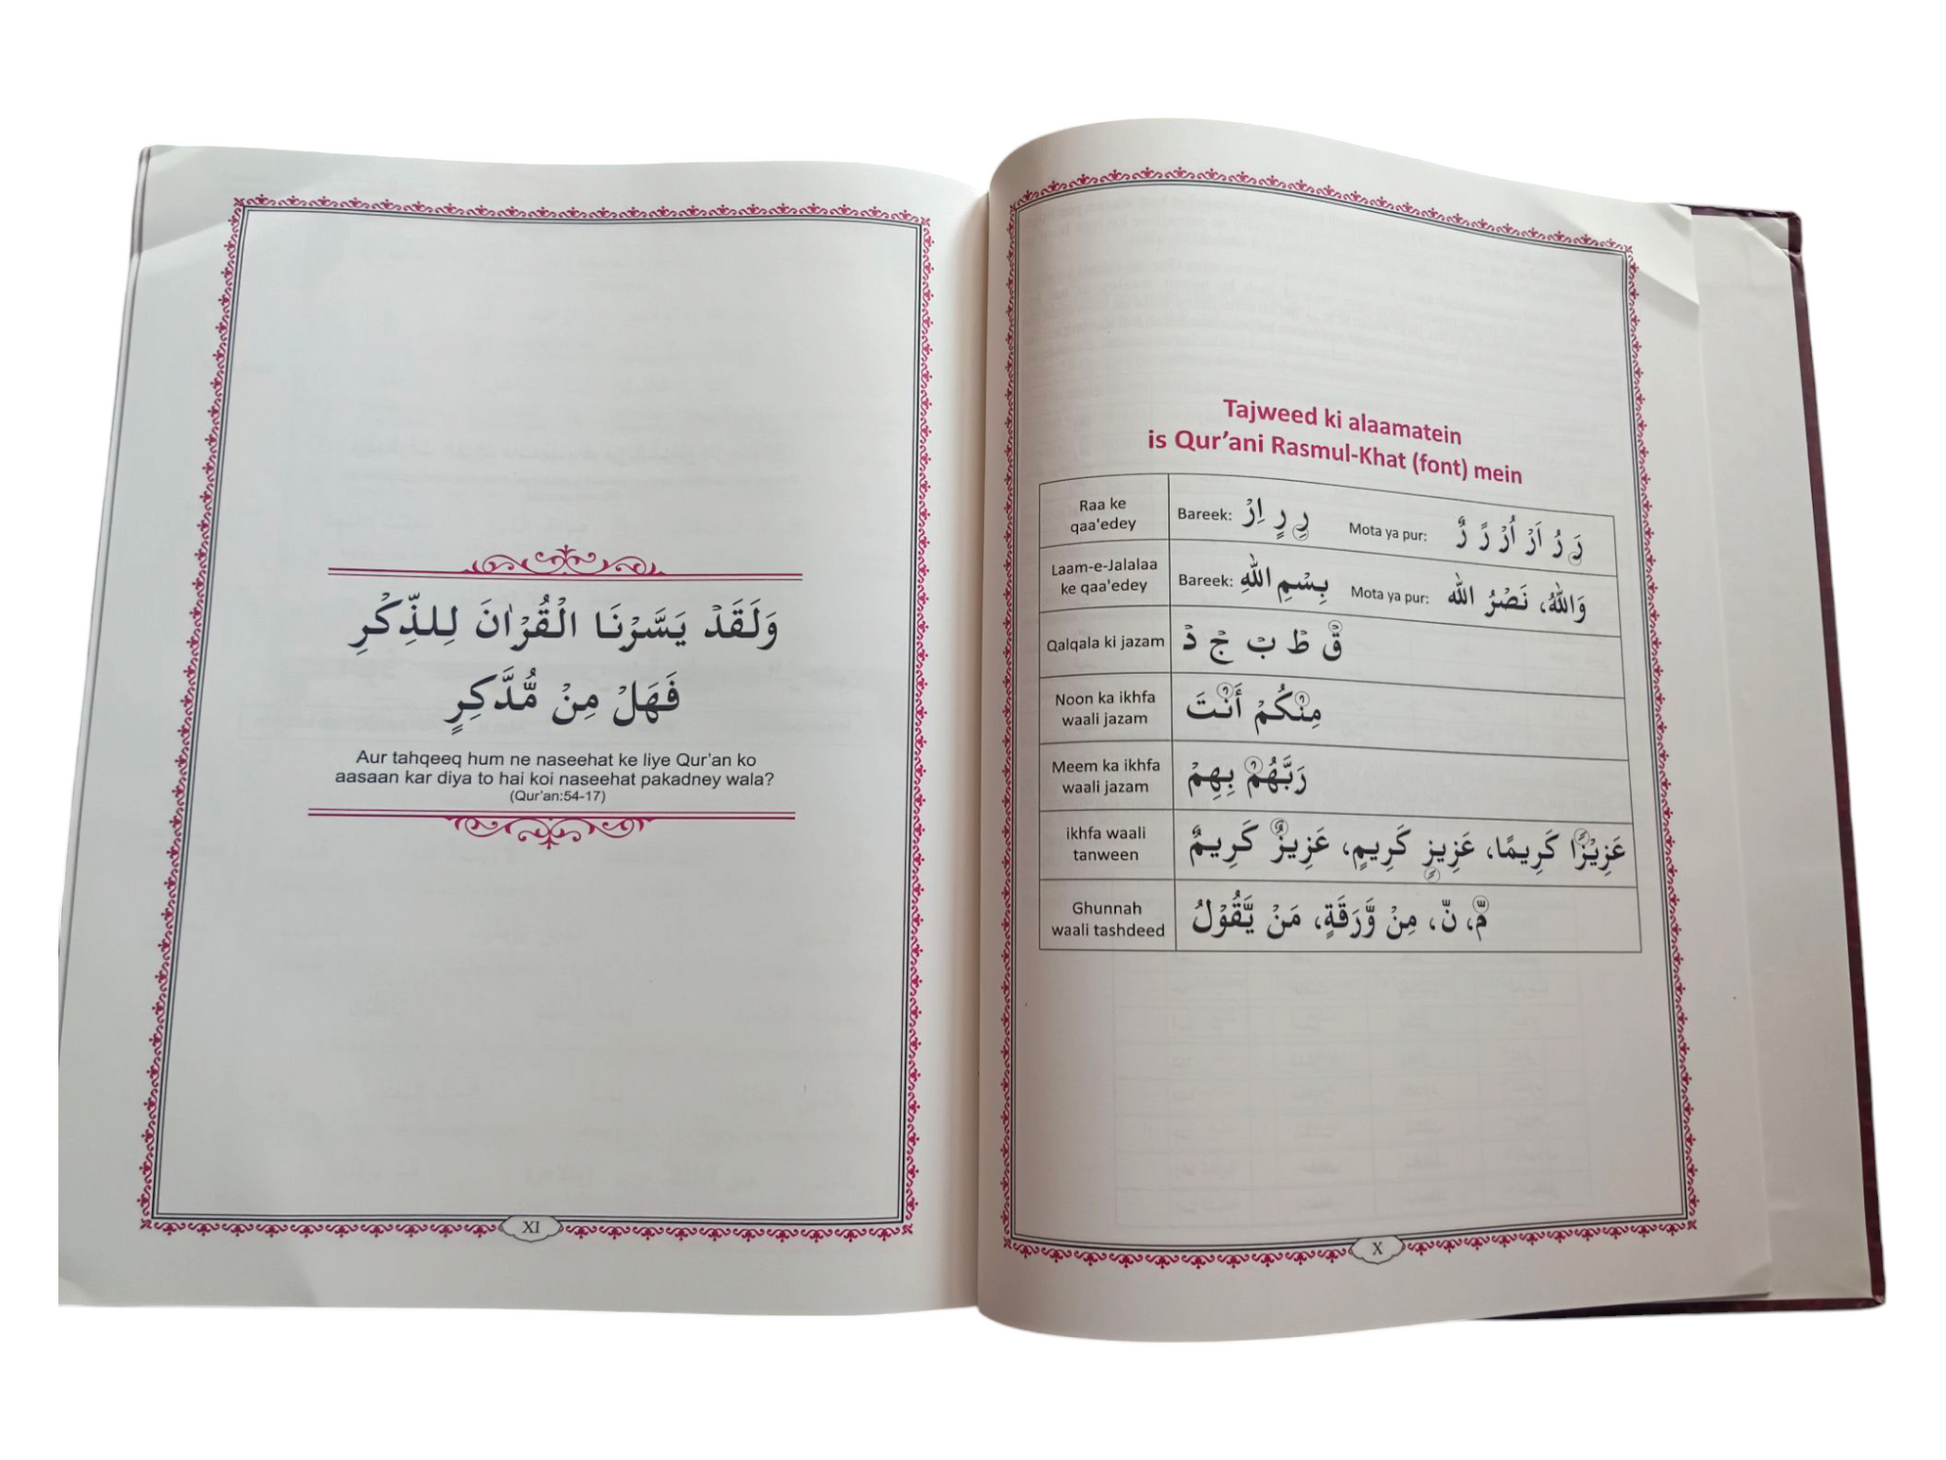 Tajweed ki alaamatein
is Qur’ani Rasmul-Khat (font) mein
Raa ke
qaa'edey
Bareek: رِ رٍ اِرْ Mota ya pur: رَ رُ اَرْ اُرْ رً رٌ
Laam-e-Jalalaa
ke qaa'edey
Bareek: بِسْمِ اللهِ Mota ya pur: وَاللهُ، نَصْرُ الله
Qalqala ki jazam
قْ طْ بْ جْ دْ
Noon ka ikhfa
waali jazam
مِنْكُمْ أَنْتَ
Meem ka ikhfa
waali jazam
رَبَّهُمْ بِهِمْ
ikhfa waali
tanween
عَزِيْزًا كَرِيمًا، عَزِيزٍ كَرِيمٍ، عَزِيزٌ كَرِيمٌ
Ghunnah
waali tashdeed
مّ، نّ، مِنْ وَّرَقَةٍ، مَنْ يَّقُوْلُ
X
وَلَقَدْ يَسَّرْنَا الْقُرْاٰنَ لِلذِّكْرِ
فَهَلْ مِنْ مُّدَّكِرٍ
Aur tahqeeq hum ne naseehat ke liye Qur’an ko
aasaan kar diya to hai koi naseehat pakadney wala?
(Qur’an:54-17)
XI